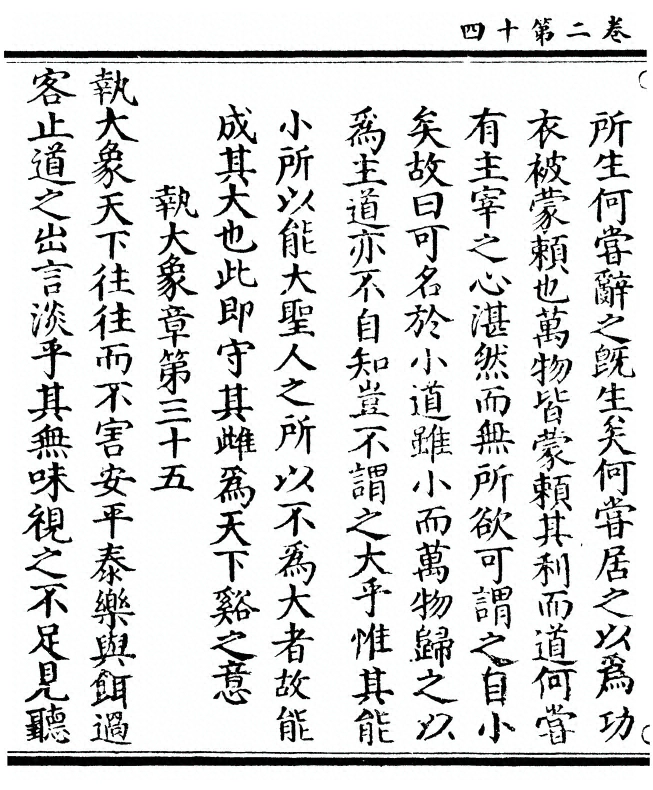 卷二第十四
所生何甞辭之既生矣何甞居之以爲功
衣被蒙頼也萬物皆蒙頼其利而道何甞
有主宰之心湛然而無所欲可謂之自小
矣故曰可名於小道雖小而萬物歸之以
爲主道亦不自知豈不謂之大乎惟其能
小所以能大聖人之所以不爲大者故能
成其大也此即守其雌爲天下谿之意
執大象章第三十五
執大象天下往往而不害安平泰樂與餌過
客止道之出言淡乎其無味視之不足見聽